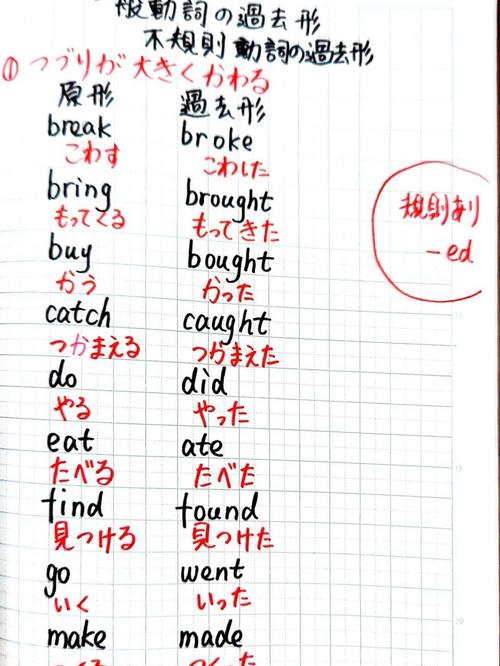 般動詞の過去形
不規則動詞の過去形
① つづりが大きくかわる
原形 過去形
break broke
こわす こわした
bring brought
もってくる もってきた
規則あり
-ed
buy bought
かう かった
catch caught
つかまえる つかまえた
do did
やる やった
eat ate
たべる たべた
find found
見つける 見つけた
go went
いく いった
make made